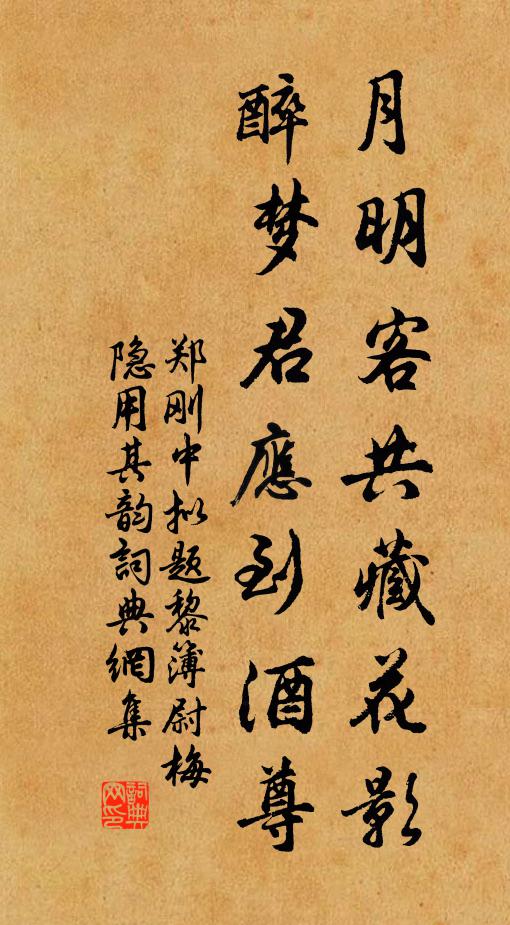 月明客共藏花影
醉梦君應到酒尊
郑刚中拟题黎簿尉梅
隐用其韵詞典網集
詞典网印